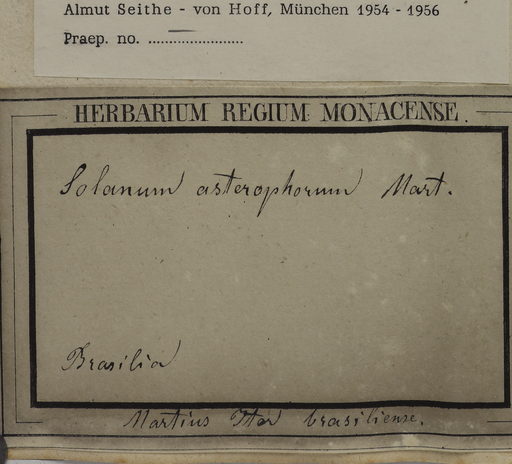 Almut Seithe - von Hoff, München 1954 - 1956
Praep. no. .......................
HERBARIUM REGIUM MONACENSE.
Solanum asterophorum Mart.
Brasilia
Martius Iter brasiliense.